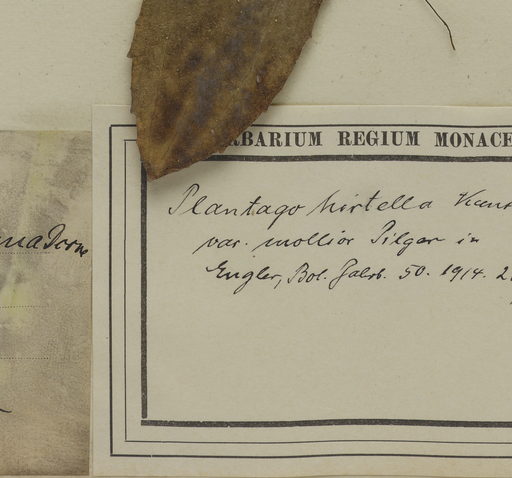 RBARIUM REGIUM MONACE
Plantago hirtella Kunt
var. mollior Pilger in
Engler, Bot. Jahrb. 50. 1914. 2